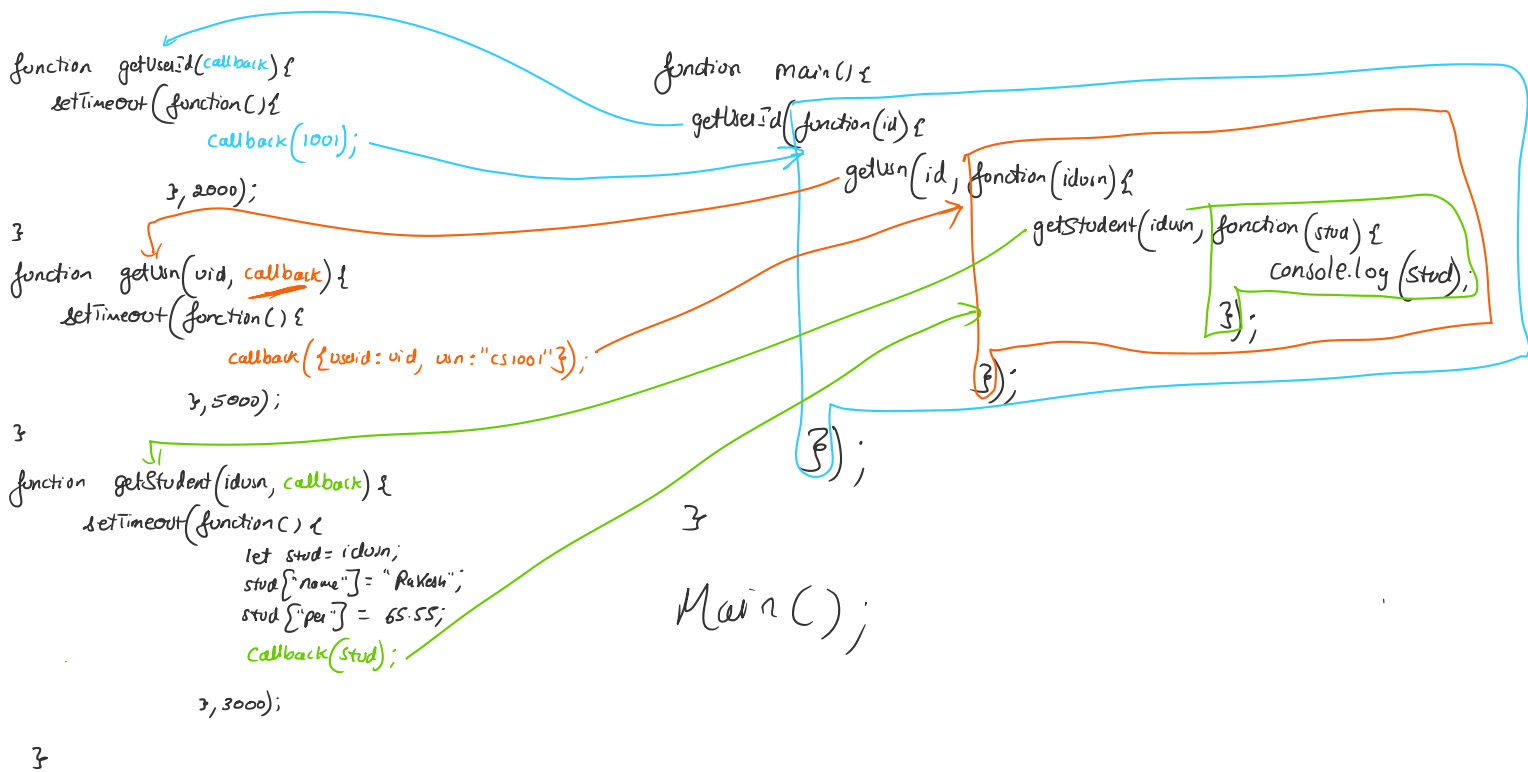 function getUserId(callback) {
setTimeout(function() {
callback(1001);
}, 2000);
}
function getUsn(uid, callback) {
setTimeout(function() {
callback({userid: uid, usn: "CS1001"});
}, 5000);
}
function getStudent(idusn, callback) {
setTimeout(function() {
let stud = idusn;
stud["name"] = "Rakesh";
stud["per"] = 65.55;
callback(stud);
}, 3000);
}
function main() {
getUserId(function(id) {
getUsn(id, function(idusn) {
getStudent(idusn, function(stud) {
console.log(stud);
});
});
});
}
Main();